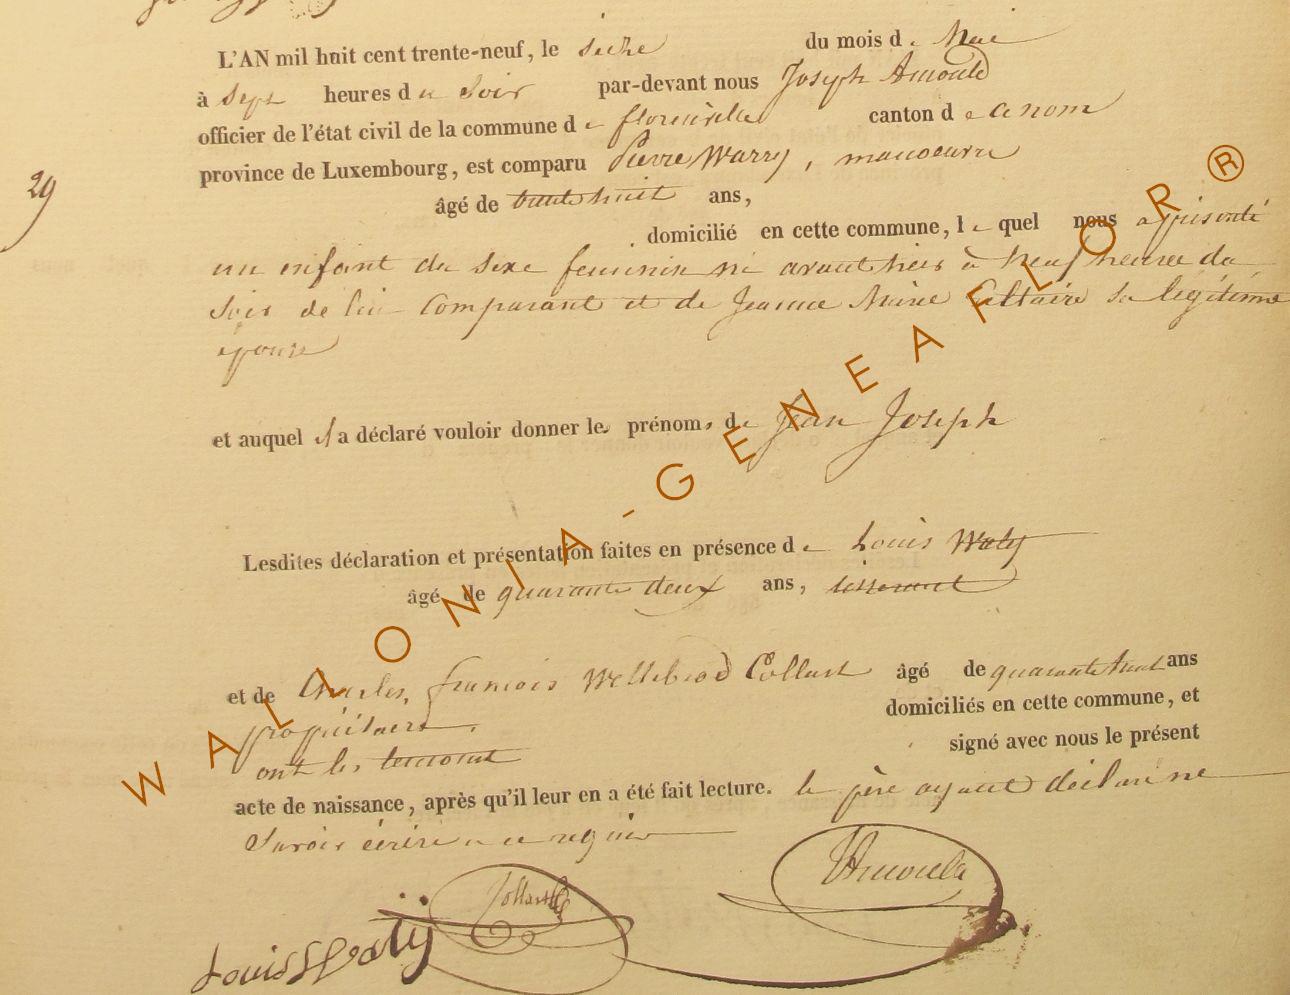 L'AN mil huit cent trente-neuf, le seize du mois de Mai
à sept heures du Soir par-devant nous Joseph Amould
officier de l'état civil de la commune de florenville canton de ce nom
province de Luxembourg, est comparu Pierre Warry, manoeuvre
29
âgé de trente huit ans,
domicilié en cette commune, lequel nous a présenté
un enfant du sexe feminin né avant hier à neuf heures du
Soir de lui comparant et de Jeanne Marie sa légitime
épouse
et auquel il a déclaré vouloir donner les prénoms de Jean Joseph
Lesdites déclaration et présentation faites en présence de Louis Waty
âgé de quarante deux ans, tisserant
et de Charles, françois Willebrod Collart âgé de quarante huit ans
propriétaire domiciliés en cette commune, et
ont les temoins signé avec nous le présent
acte de naissance, après qu'il leur en a été fait lecture. le père ayant déclaré ne
Savoir écrire a ce requis
Collart
Louis Waty
WALLONIA-GENEAFLOR®